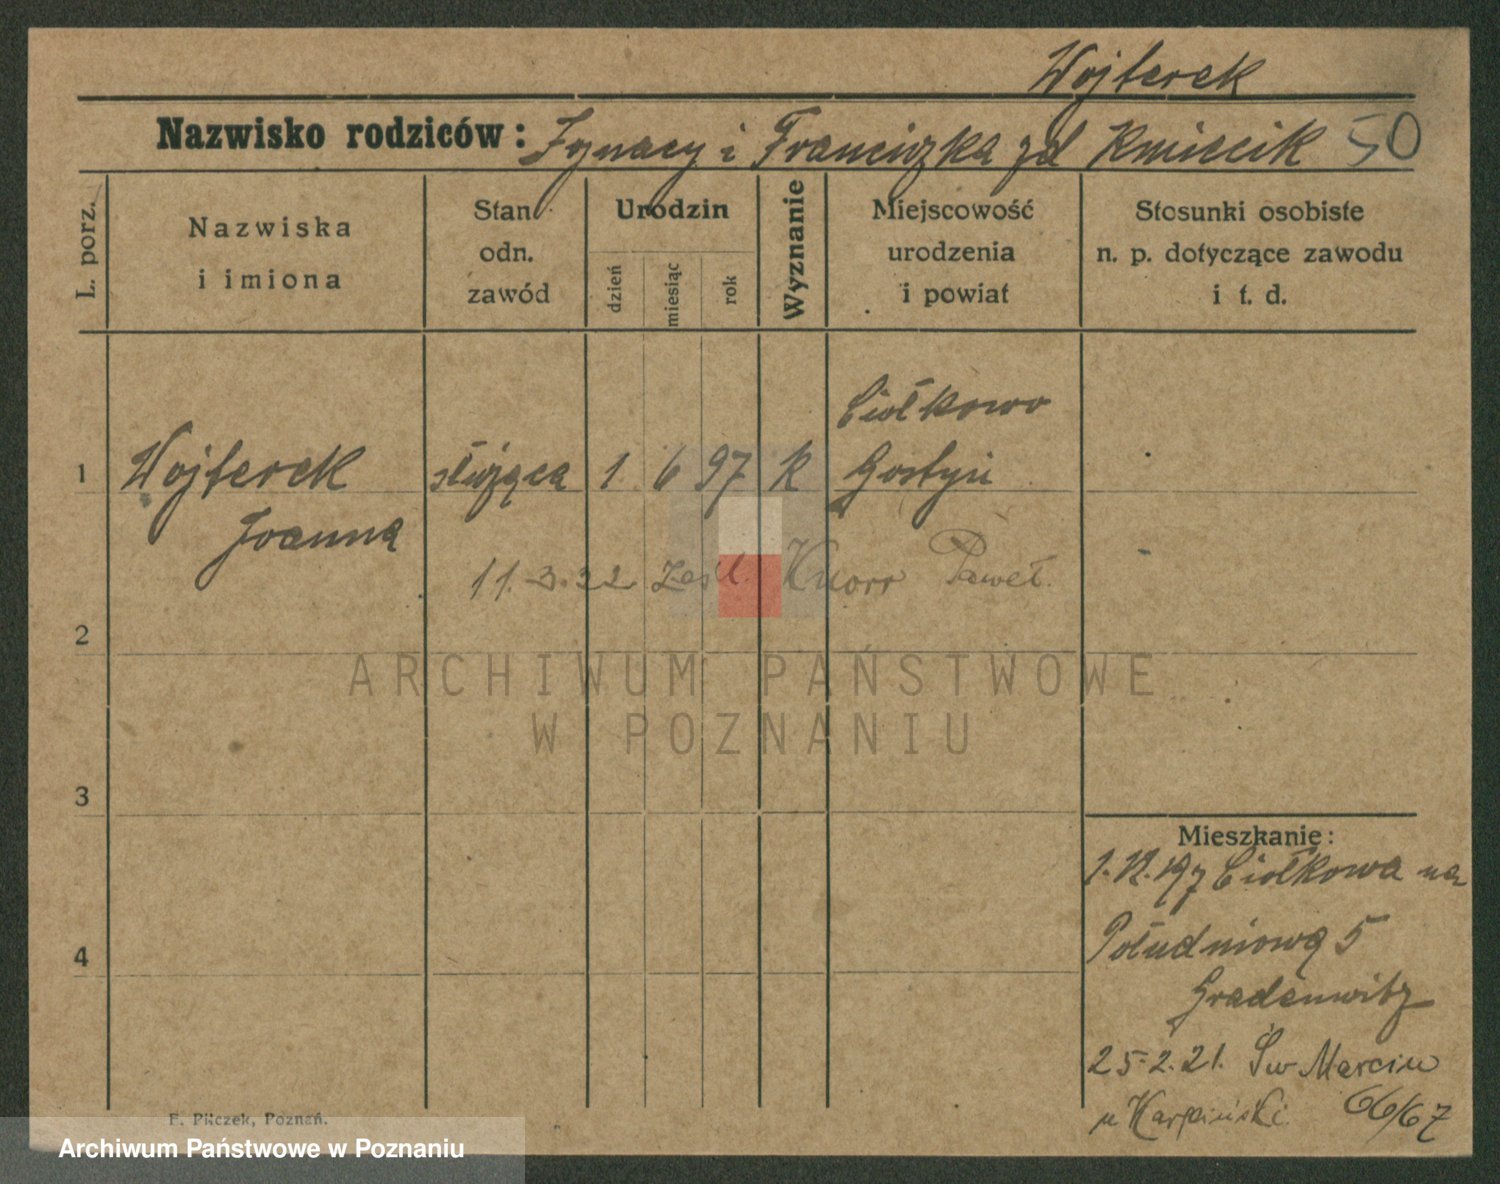 Wojterek
Nazwisko rodziców: Ignacy i Franciszka zd Kmiecik 50
L. porz.
Nazwiska i imiona
Stan odn. zawód
Urodzin
dzień
miesiąc
rok
Wyznanie
Miejscowość urodzenia i powiat
Stosunki osobiste n. p. dotyczące zawodu i t. d.
Ciołkowo
1 Wojterek służąca 1 6 97 K Gostyń
Joanna
11.3.22 zaśl. Knorr Paweł.
2
ARCHIWUM PAŃSTWOWE
W POZNANIU
3
Mieszkanie:
Ciołkowa na
4
Południową 5
Gradenwitz
25.2.21. Św Marcin
u Karpiński 66/67
F. Pilczek, Poznań.
Archiwum Państwowe w Poznaniu